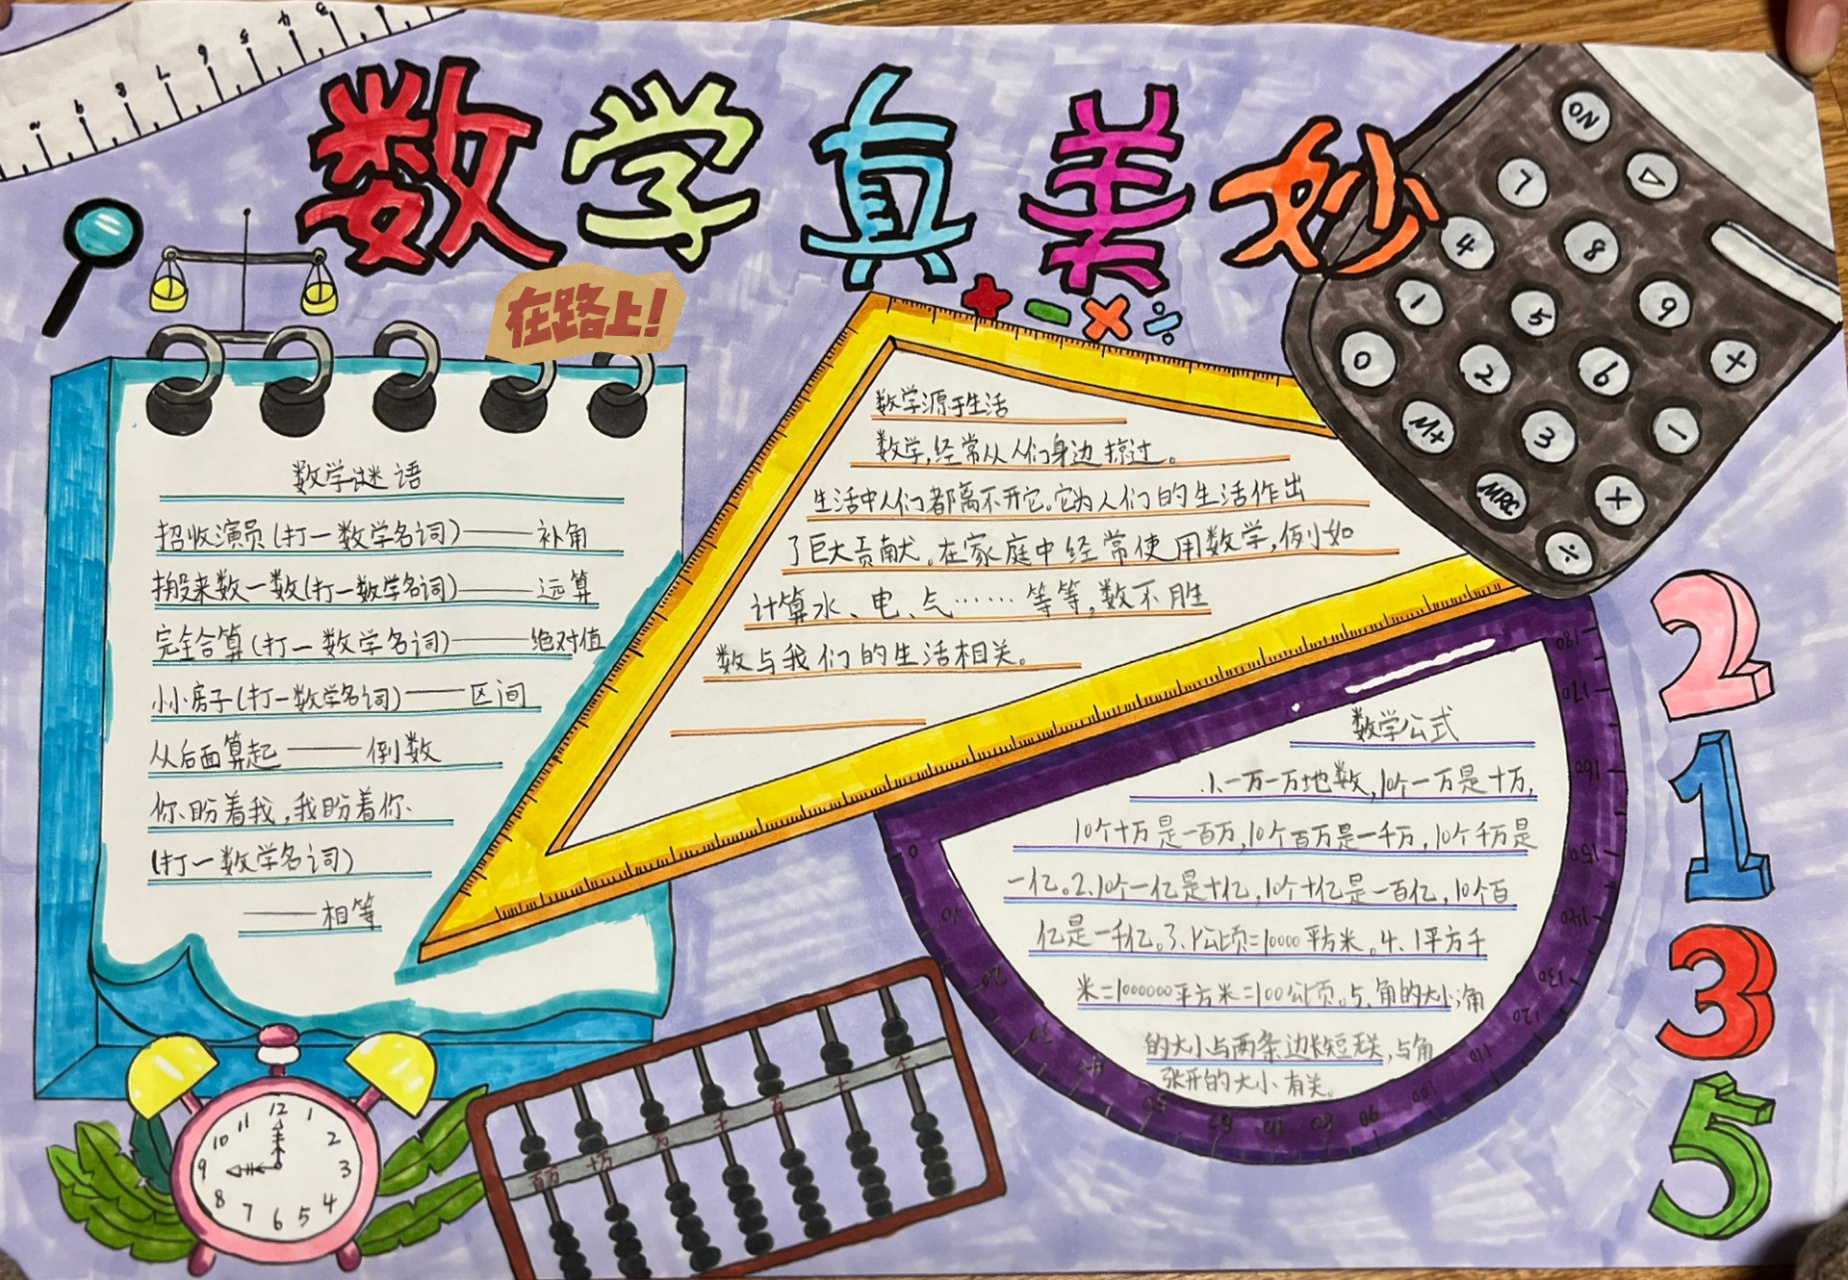 数学真美妙
在路上!
+ - × ÷
数学谜语
招收演员(打一数学名词)——补角
搬来数一数(打一数学名词)——运算
完全合算(打一数学名词)——绝对值
小小房子(打一数学名词)——区间
从后面算起——倒数
你盼着我,我盼着你
(打一数学名词)
——相等
数学源于生活
数学,经常从人们身边掠过。
生活中人们都离不开它。它为人们的生活作出
了巨大贡献。在家庭中经常使用数学,例如
计算水、电、气……等等,数不胜
数与我们的生活相关。
数学公式
1、一万一万地数,10个一万是十万,
10个十万是一百万,10个百万是一千万,10个千万是
一亿。2、10个一亿是十亿,10个十亿是一百亿,10个百
亿是一千亿。3、1公顷=10000平方米。4、1平方千
米=1000000平方米=100公顷。5、角的大小:角
的大小与两条边长短无关,与角
张开的大小有关。
ON
7
4 8
1 5 9
0 2 6 +
M+ 3 -
MRC ×
÷
2
1
3
5
百万 十万 万 千 百 十 个
12 1 2 3 4 5 6 7 8 9 10 11